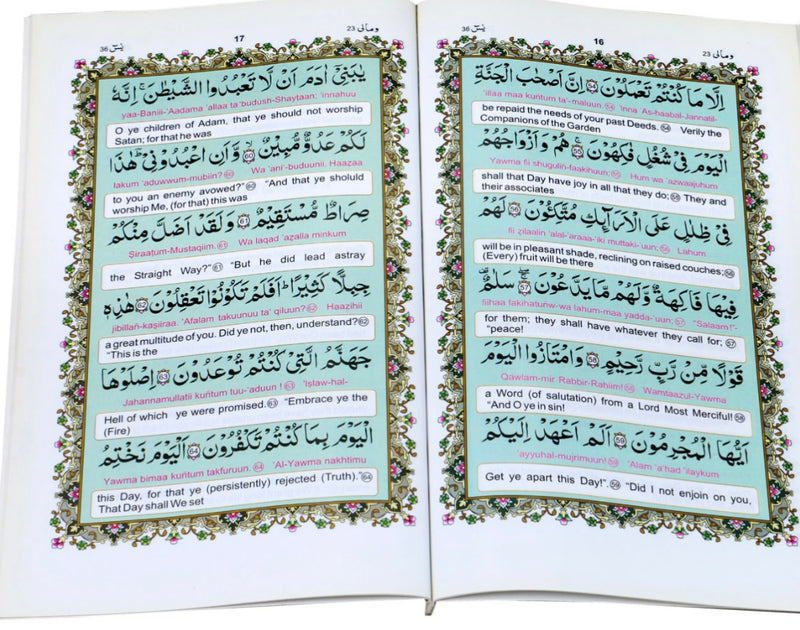 يٰسٓ 36
16
ومالى 23
اِلَّا مَا كُنْتُمْ تَعْمَلُوْنَ ۝54 اِنَّ اَصْحٰبَ الْجَنَّةِ
'illaa maa kuntum ta'-maluun.54 'Inna 'As-haabal-Jannatil-
be repaid the needs of your past Deeds.54 Verily the
Companions of the Garden
الْيَوْمَ فِيْ شُغُلٍ فٰكِهُوْنَ ۝55 هُمْ وَاَزْوَاجُهُمْ
Yawma fii shugulin-faakihuun;55 Hum wa 'azwaajuhum
shall that Day have joy in all that they do;55 They and
their associates
فِيْ ظِلٰلٍ عَلَى الْاَرَآئِكِ مُتَّكِـُٔوْنَ ۝56 لَهُمْ
fii zilaalin 'alal-'araaa-'iki muttaki-'uun;56 Lahum
will be in pleasant shade, reclining on raised couches;56
(Every) fruit will be there
فِيْهَا فَاكِهَةٌ وَّلَهُمْ مَّا يَدَّعُوْنَ ۝57 سَلٰمٌ
fiihaa fakihatunw-wa lahum-maa yadda-'uun;57 "Salaam!"-
for them; they shall have whatever they call for;57
"peace!
قَوْلًا مِّنْ رَّبٍّ رَّحِيْمٍ ۝58 وَامْتَازُوا الْيَوْمَ
Qawlam-mir Rabbir-Rahiim!58 Wamtaazul-Yawma
a Word (of salutation) from a Lord Most Merciful!58
"And O ye in sin!
اَيُّهَا الْمُجْرِمُوْنَ ۝59 اَلَمْ اَعْهَدْ اِلَيْكُمْ
'ayyuhal-mujrimuun!59 'Alam 'a'had 'ilaykum
Get ye apart this Day!".59 "Did I not enjoin on you,
يٰسٓ 36
17
ومالى 23
يٰبَنِيْٓ اٰدَمَ اَنْ لَّا تَعْبُدُوا الشَّيْطٰنَ ۚ اِنَّهٗ
yaa-Baniii-'Aadama 'allaa ta'budush-Shaytaan; 'innahuu
O ye children of Adam, that ye should not worship
Satan; for that he was
لَكُمْ عَدُوٌّ مُّبِيْنٌ ۝60 وَّاَنِ اعْبُدُوْنِيْ ؕ هٰذَا
lakum 'aduwwum-mubiin?60 Wa 'ani'-buduunii. Haazaa
to you an enemy avowed?"60 "And that ye sholuld
worship Me, (for that) this was
صِرَاطٌ مُّسْتَقِيْمٌ ۝61 وَلَقَدْ اَضَلَّ مِنْكُمْ
Siraatum-Mustaqiim.61 Wa laqad 'azalla minkum
the Straight Way?"61 "But he did lead astray
جِبِلًّا كَثِيْرًا ؕ اَفَلَمْ تَكُوْنُوْا تَعْقِلُوْنَ ۝62 هٰذِهٖ
jibillan-kasiiraa. 'Afalam takuunuu ta' qiluun?62 Haazihii
a great multitude of you. Did ye not, then, understand?62
"This is the
جَهَنَّمُ الَّتِيْ كُنْتُمْ تُوْعَدُوْنَ ۝63 اِصْلَوْهَا
Jahannamullatii kuntum tuu-'aduun !63 'Islaw-hal-
Hell of which ye were promised.63 "Embrace ye the
(Fire)
الْيَوْمَ بِمَا كُنْتُمْ تَكْفُرُوْنَ ۝64 اَلْيَوْمَ نَخْتِمُ
Yawma bimaa kuntum takfuruun.64 'Al-Yawma nakhtimu
this Day, for that ye (persistently) rejected (Truth)."64
That Day shall We set